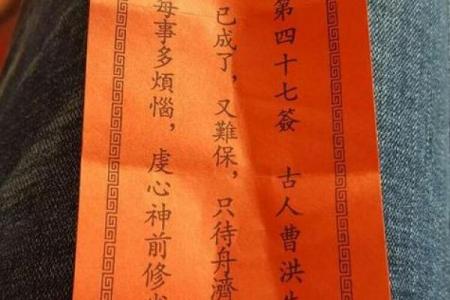 第四十七簽　古人曹洪
已成了，又難保，只待舟濟
每事多煩惱，虔心神前修